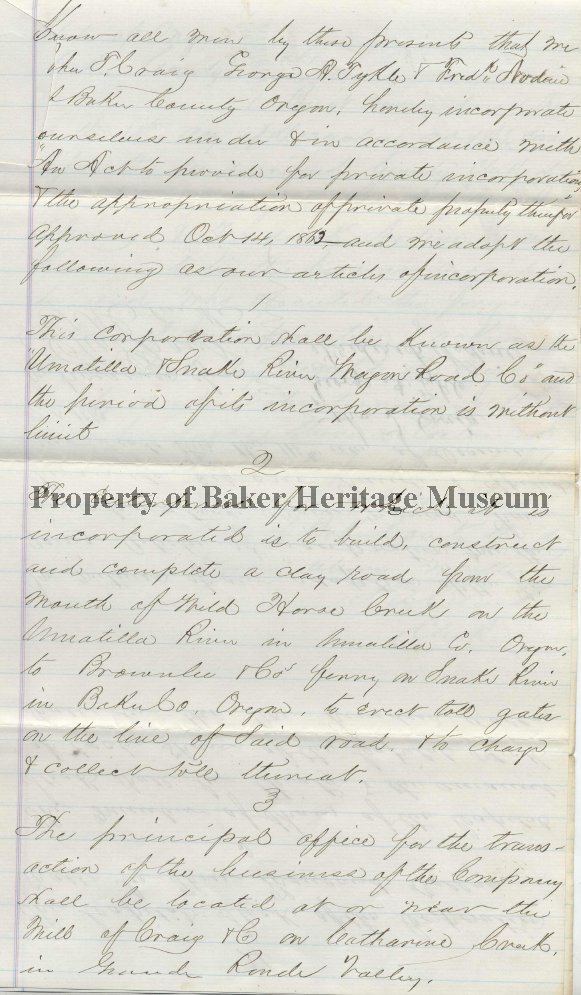 Know all men by these presents that we
John T. Craig George A. Tykle & Fredk
of Baker County Oregon, hereby incorporate
ourselves under & in accordance with
"An Act to provide for private incorporations
& the appropriation of private property therefor"
approved Oct 14, 1862, and we adopt the
following as our articles of incorporation.
1
This corporation shall be known as the
"Umatilla & Snake River Wagon Road Co" and
the period of its incorporation is without
limit
2
Property of Baker Heritage Museum
The for which it is
incorporated is to build, construct
and complete a clay road from the
mouth of Wild Horse Creek on the
Umatilla River in Umatilla Co. Oregon,
to Brownlee & Cos ferry on Snake River
in Baker Co. Oregon, to erect toll gates
on the line of said road, & to charge
& collect toll thereat.
3
The principal office for the trans-
action of the business of the Company
shall be located at or near the
Mill of Craig & Co on Catharine Creek,
in Grande Ronde Valley.